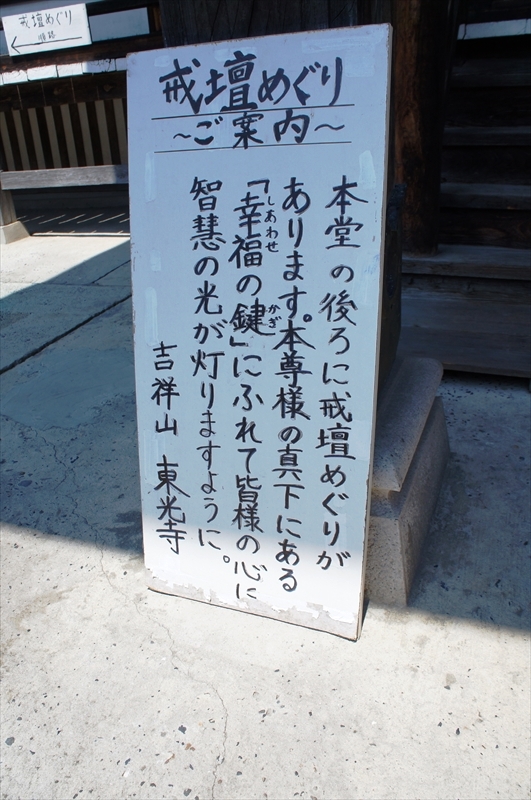 戒壇めぐり
順路
戒壇めぐり
～ご案内～
本堂の後ろに戒壇めぐりが
あります。本尊様の真下にある
「幸福の鍵」にふれて皆様の心に
しあわせ
かぎ
智慧の光が灯りますように。
吉祥山 東光寺